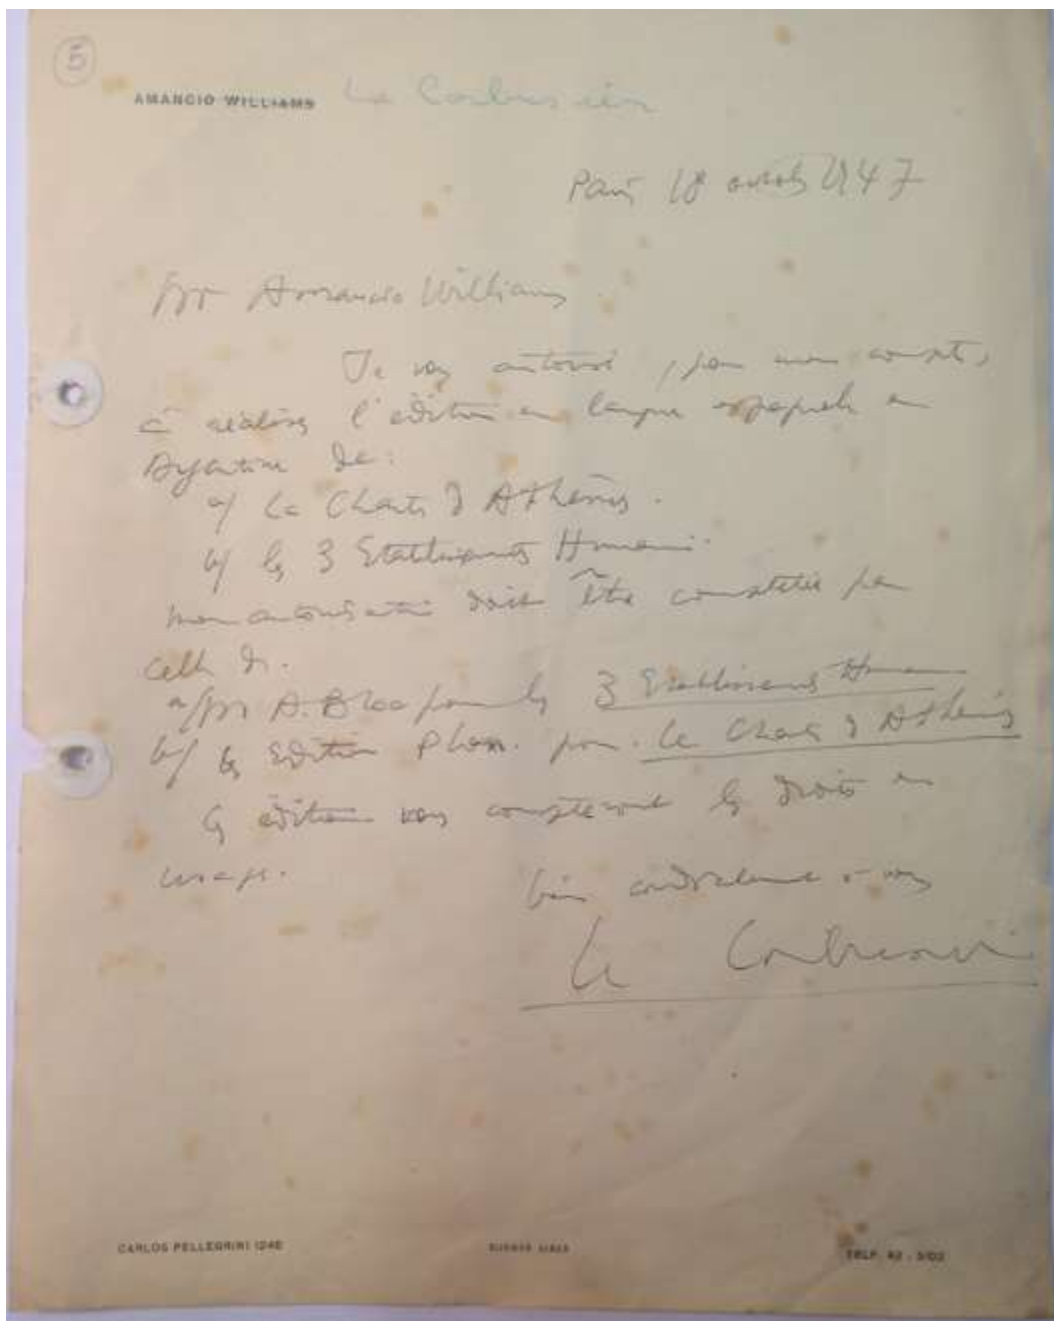 5
AMANCIO WILLIAMS Le Corbusier
Paris 18 octobre 1947
Amancio Williams
Je vous autorise, pour mon compte,
à réaliser l'édition en langue espagnole en
Argentine de:
a/ La Charte d'Athènes.
b/ les 3 Etablissements Humains.
mon autorisation doit être complétée par
celle de.
a/ Mr A. Bloc pour les 3 Etablissements Humains
b/ les Edition Plon. pour. La Charte d'Athènes
Ces éditions vous compteront les droits en
usage.
bien cordialement à vous
Le Corbusier
CARLOS PELLEGRINI 1248 BUENOS AIRES TELF. 42 -